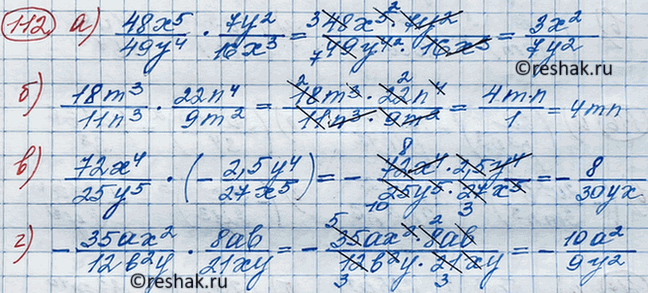 112 а) 48x⁵/49y⁴ · 7y²/16x³ = 3 48x⁵ ² · 7y²/7 49y⁴ ² · 16x³ = 3x²/7y²
©reshak.ru
б) 18m³/11n³ · 22n⁴/9m² = 2 18m³ · 2 22n⁴/11n³ · 9m² = 4m·n/1 = 4mn
в) 72x⁴/25y⁵ · (- 2,5y⁴/27x⁵) = - 8 72x⁴ · 2,5y⁴/10 25y⁵ · 3 27x⁵ = - 8/30yx
©reshak.ru
г) - 35ax²/12в²y · 8aв/21xy = - 5 35ax² · 2 8aв/3 12в²y · 3 21xy = - 10a²/9y²
©reshak.ru